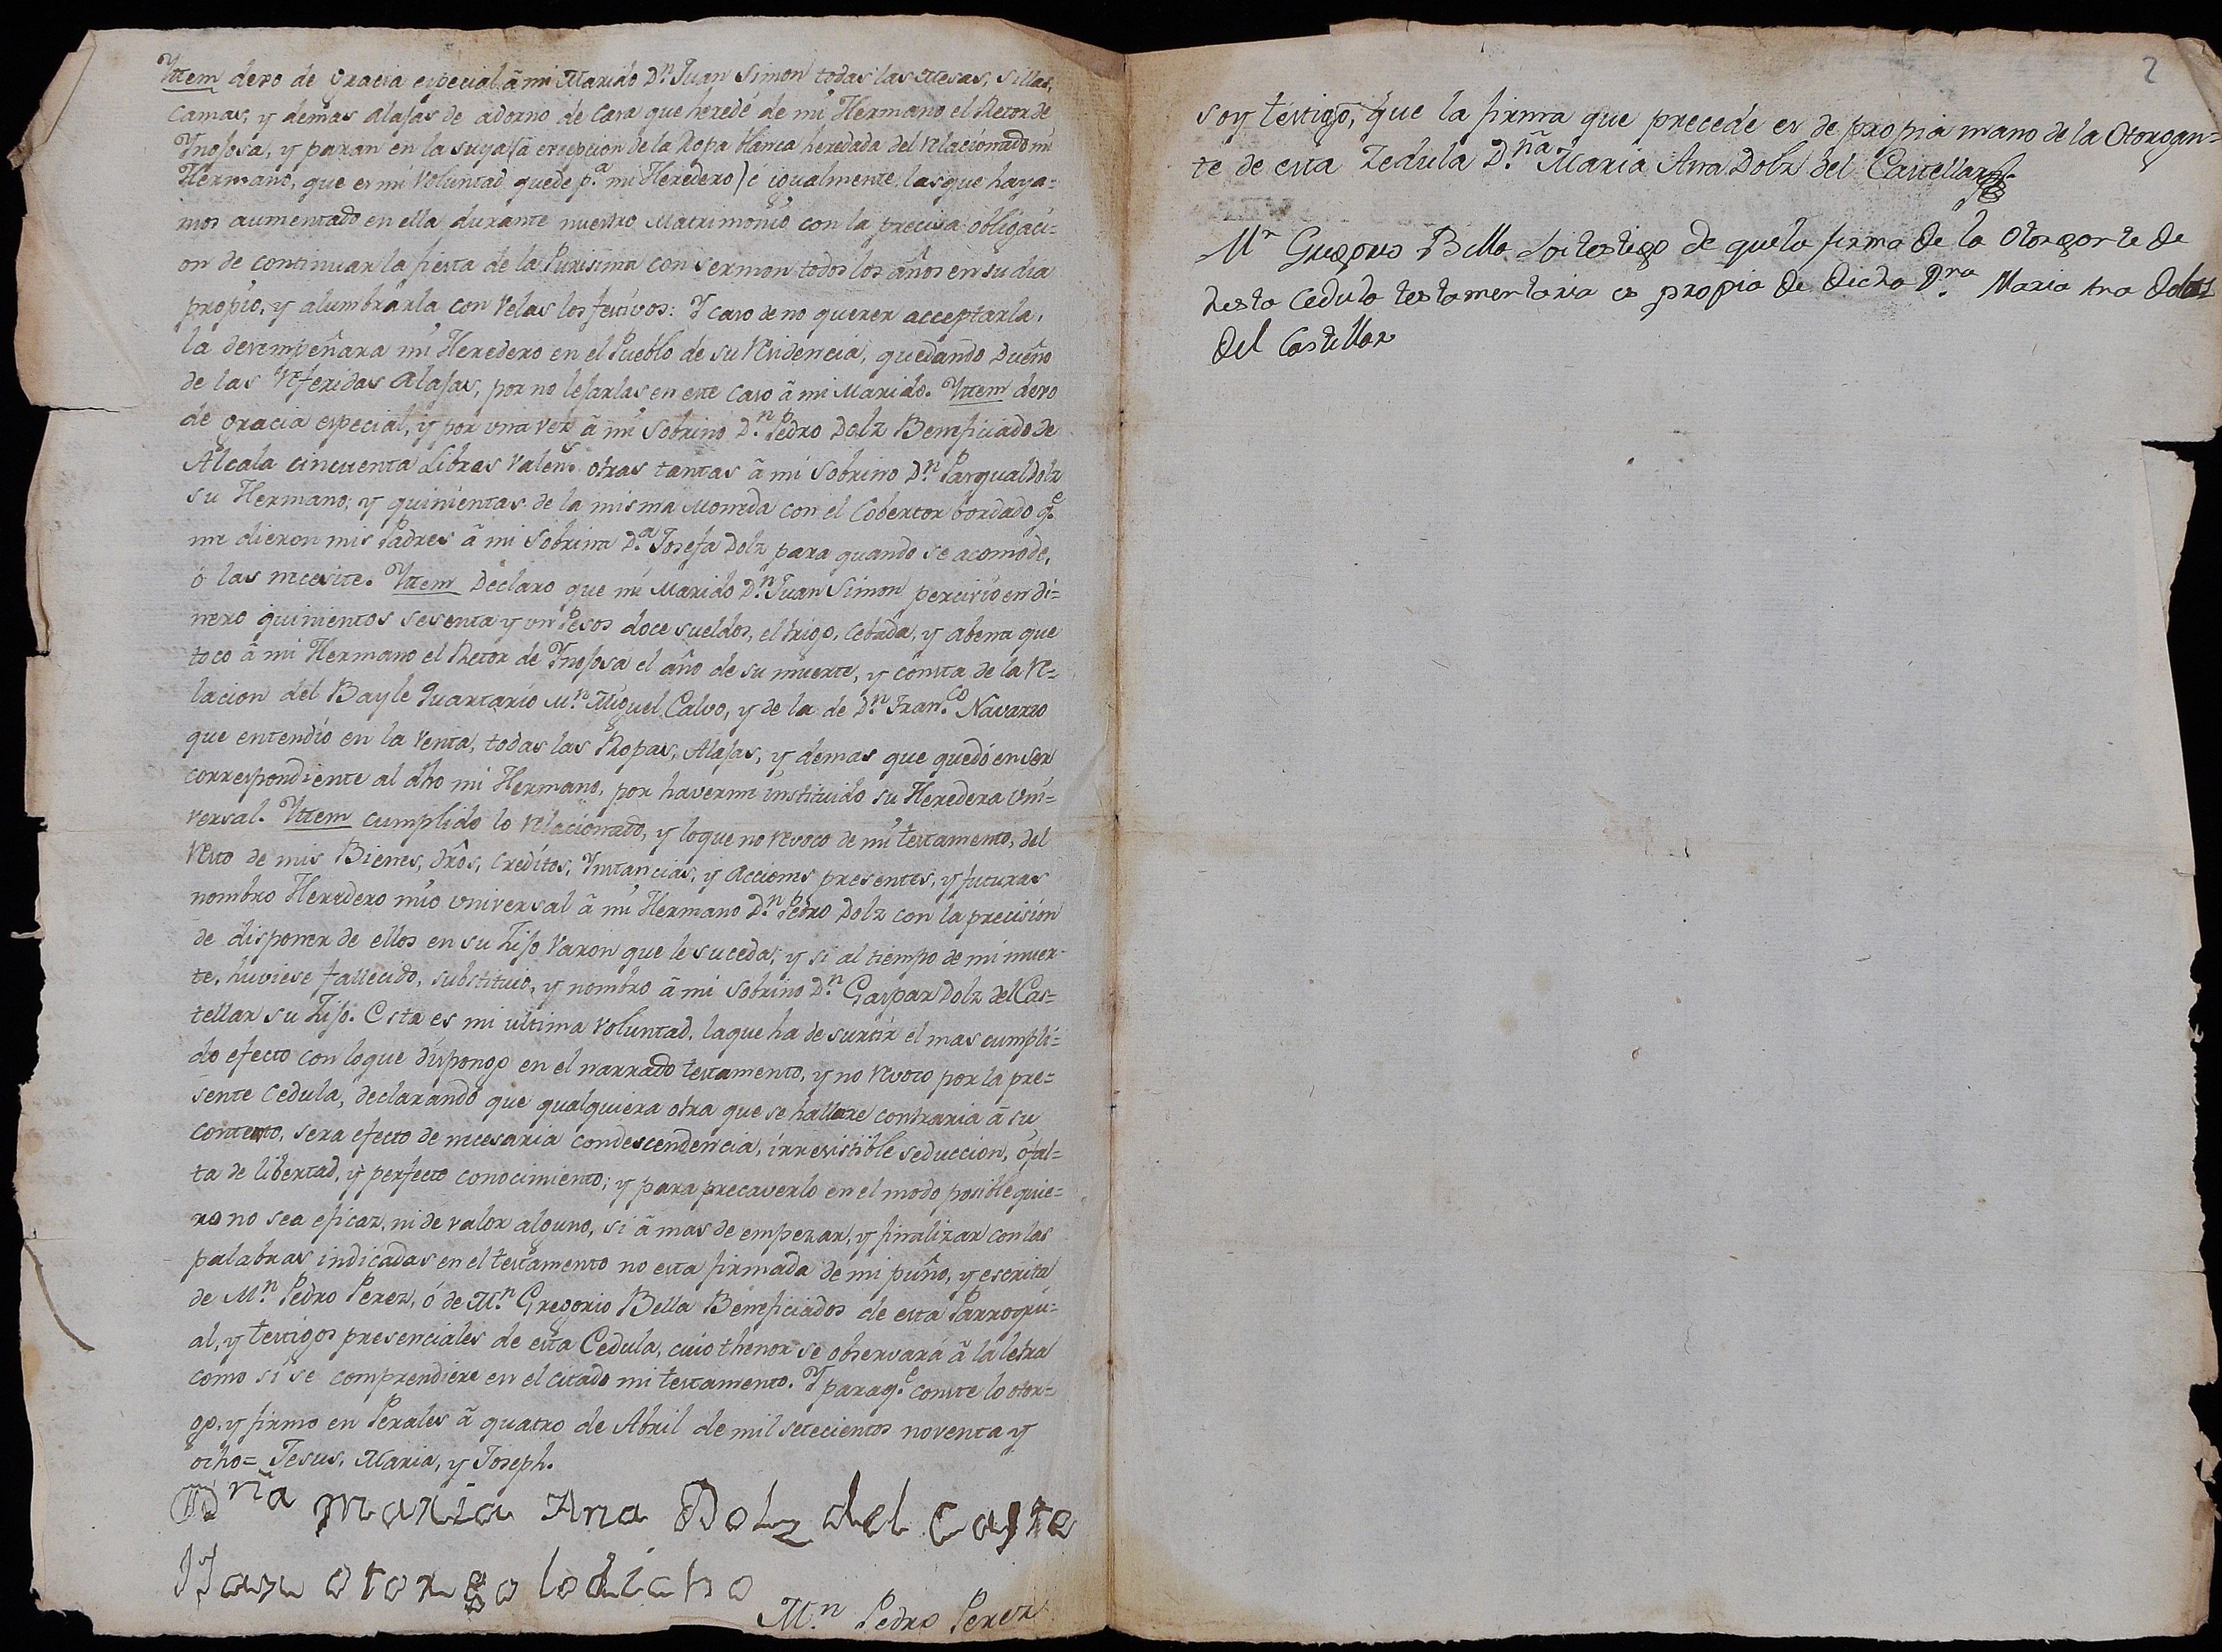 Yttem dexo de Gracia especial â mi Marido Dn. Juan Simon todas las Mesas, Sillas,
Camas, y demas alajas de adorno de Casa que heredé de mi Hermano el Retor de
Ynojosa, y paran en la suya (a excepcion de la Ropa blanca heredada del relacionado mi
Hermano, que es mi voluntad quede pa. mi Heredero) é igualmente las que haya=
mos aumentado en ella durante nuestro Matrimonio con la precisa obligaci=
on de continuar la fiesta de la Purisima con sermon todos los años en su dia
propio, y alumbrarla con velas los festivos: Y caso de no querer acceptarla,
la desempeñara mi Heredero en el Pueblo de su residencia, quedando Dueño
de las referidas alajas, por no lejarlas en este caso â mi Marido. Yttem dexo
de gracia especial, y por una vez â mi Sobrino Dn. Pedro Dolz Beneficiado de
Alcala cincuenta Libras Valens. otras tantas â mi Sobrino Dn. Pasqual Dolz
su Hermano; y quinientas de la misma Moneda con el Cobertor bordado qe.
me dieron mis Padres â mi Sobrina Da. Josefa Dolz para quando se acomode,
ó las necesite. Yttem Declaro que mi Marido Dn. Juan Simon percivió en di=
nero quinientos sesenta y un Pesos doce sueldos, el trigo, cebada, y abena que
toco â mi Hermano el Retor de Ynojosa el año de su muerte, y consta de la re=
lacion del Bayle Quartario Mn. Miguel Calvo, y de la de Dn. Franco. Navarro
que entendió en la venta, todas las Ropas, Alajas, y demas que quedó en ser
correspondiente al dho mi Hermano, por haverme instituido su Heredera uni=
versal. Yttem cumplido lo relacionado, y loque no revoco de mi testamento, del
resto de mis Bienes, drôs, creditos, Instancias, y acciones presentes, y futuras
nombro Heredero mio universal â mi Hermano Dn. Pedro Dolz con la precisión
de disponer de ellos en su Hijo Varon que le suceda; y si al tiempo de mi muer-
te, huviese fallecido, substituio, y nombro â mi Sobrino Dn. Gaspar Dolz del Cas=
tellar su Hijo. Esta es mi ultima voluntad, laque ha de surtir el mas cumpli=
do efecto con loque dispongo en el narrado testamento, y no revoco por la pre=
sente Cedula, declarando que qualquiera otra que se hallare contraria â su
contexto, sera efecto de necesaria condescendencia, irresistible seduccion, ó fal=
ta de libertad, y perfecto conocimiento; y para precaverlo en el modo posible quie=
ro no sea eficaz, ni de valor alguno, si â mas de empezar, y finalizar con las
palabras indicadas en el testamento no esta firmada de mi puño, y escrita
de Mn. Pedro Perez, ó de Mn. Gregorio Bella Beneficiados de esta Parroqui=
al, y testigos presenciales de esta Cedula, cuio thenor se observará â la letra
como si se comprendiere en el citado mi testamento. Y paraqe. conste lo otor=
go, y firmo en Perales â quatro de Abril de mil setecientos noventa y
ocho= Jesus, Maria, y Joseph.
Dña maria Ana Dolz del Caste
llar otorgo lodicho
Mn. Pedro Perez
2
soy testigo, que la firma que precede es de propia mano de la Otorgan=
te de esta Zedula D.ña Maria Ana Dolz del Castellar.
Mn Gregorio Bella Soi testigo de quela firma de la Otorgante de
desta Cedula testamentaria es propia de dicha Dna. Maria Ana Dolz
del Castellar